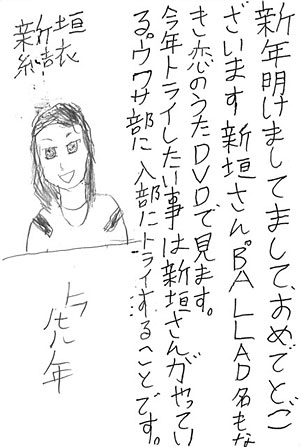 新年明けましてまして、おめでどご
ざいます新垣さん。BALLAD名もな
き恋のうたDVDで見ます。
今年トライしたい事は新垣さんがやってい
る。ウワサ部に入部にトライすることです。
新垣
結衣
トラ
虎年